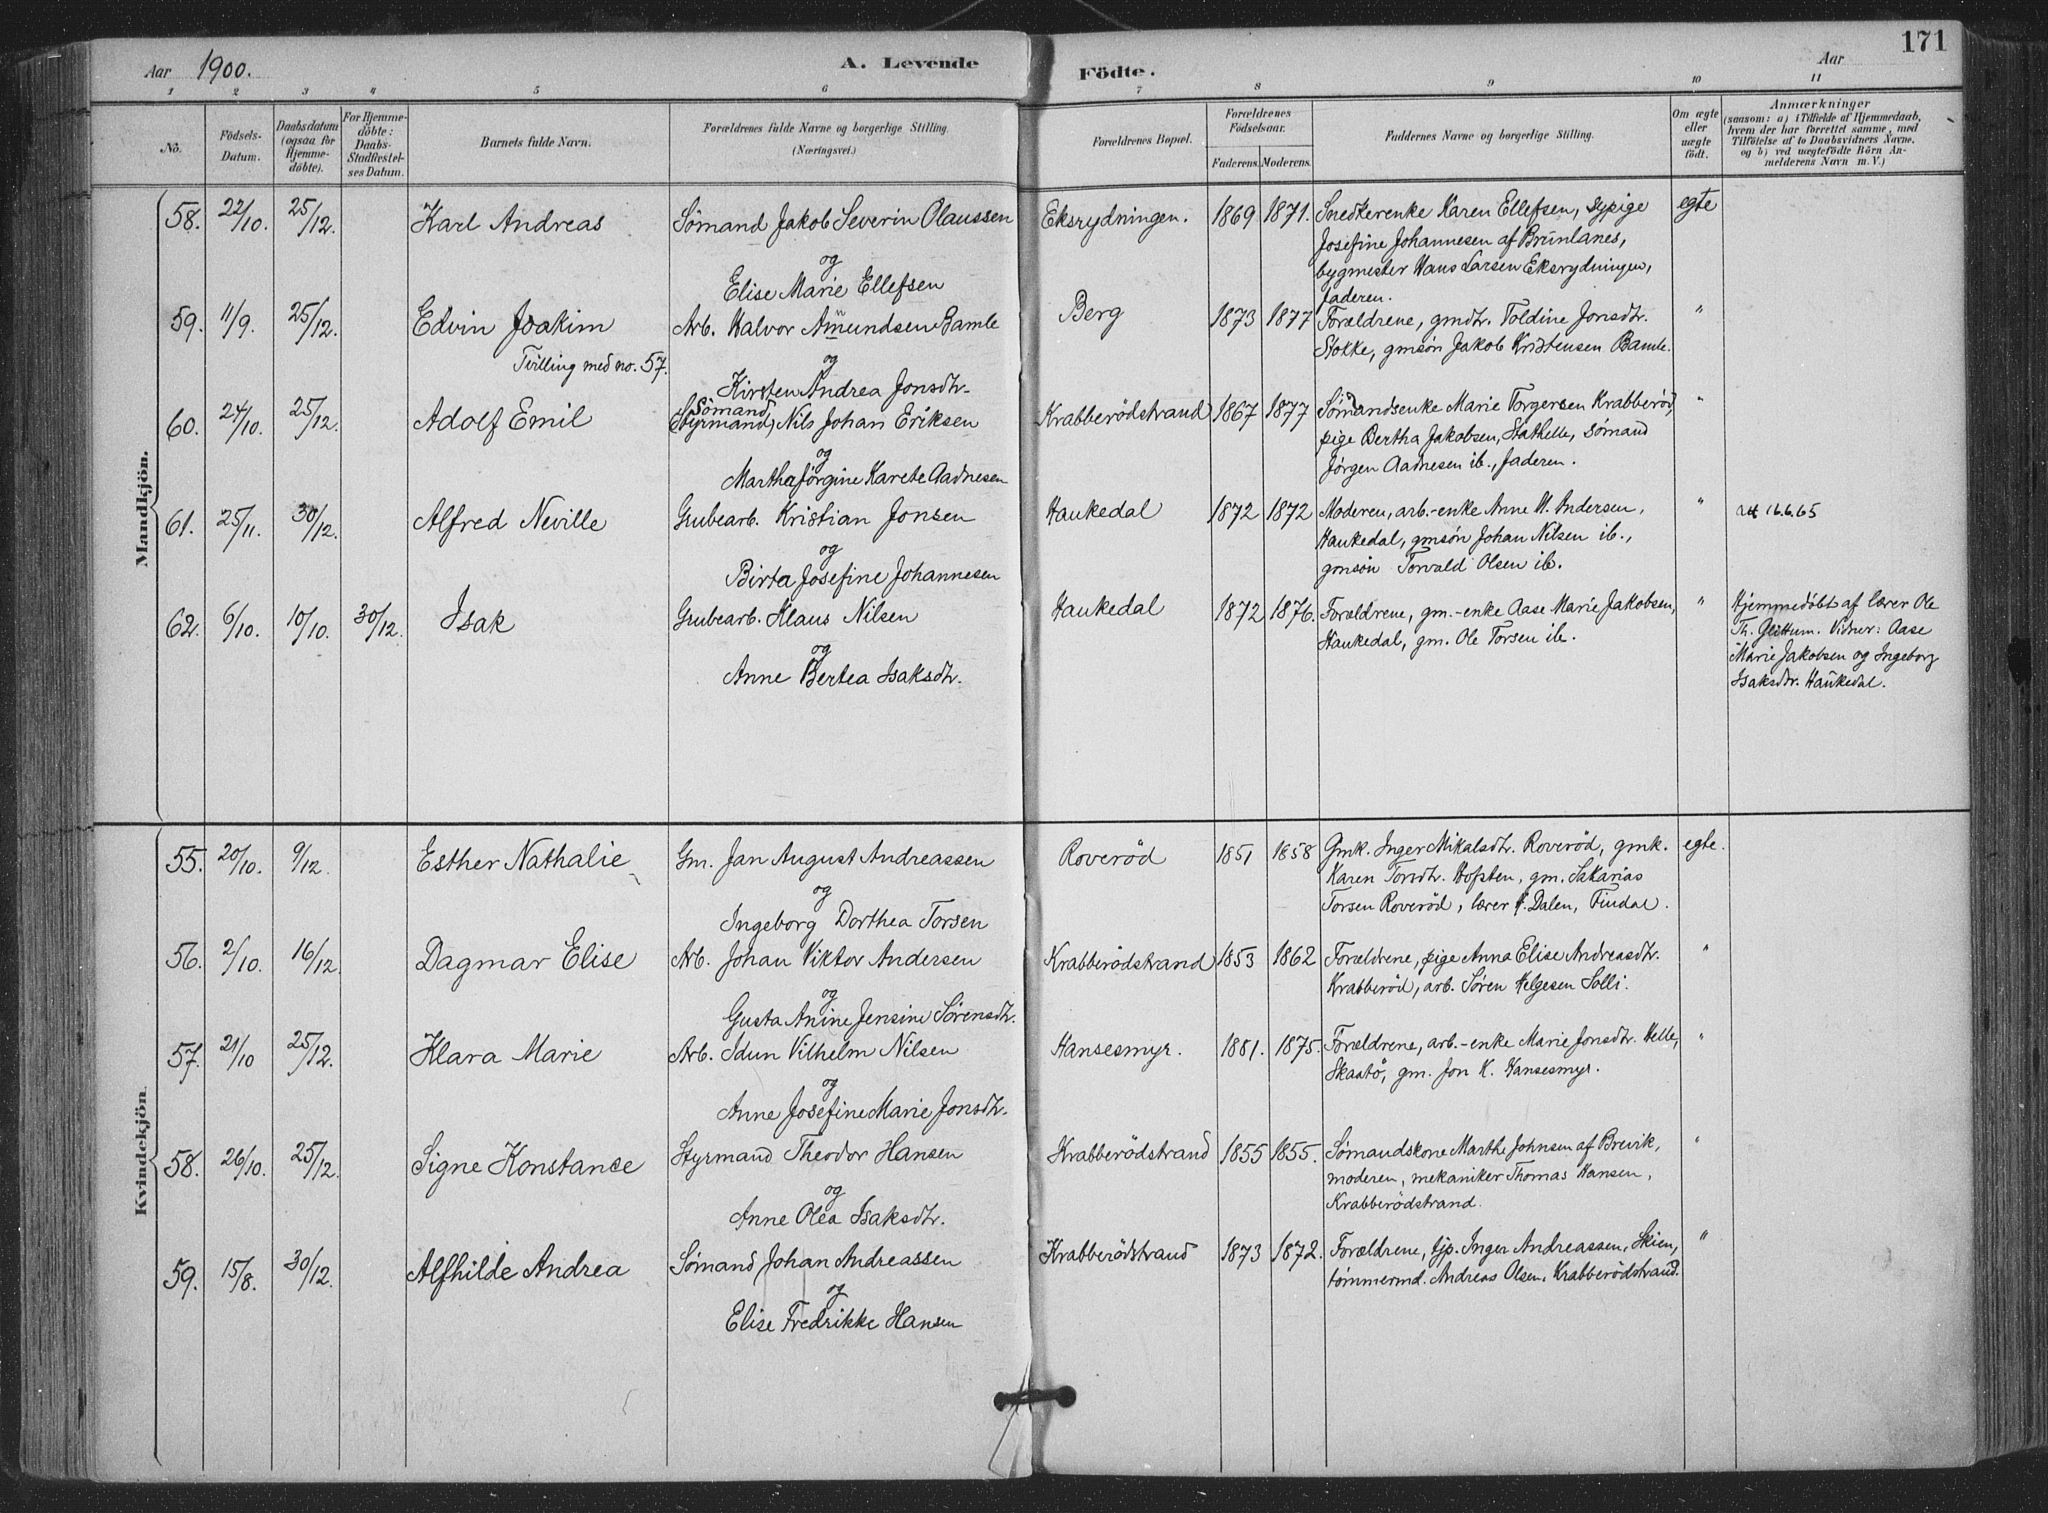 171
Aar 1900. A. Levende Födte. Aar
1 2 3 4 5 6 7 8 9 10 11
No. Födsels-Datum. Daabsdatum (ogsaa for Hjemmedöbte). For Hjemmedöbte: Daabs-Stadfæstelses Datum. Barnets fulde Navn. Forældrenes fulde Navne og borgerlige Stilling. (Næringsvei.) Forældrenes Bopæl. Forældrenes Födselsaar. Faderens. Moderens. Faddernes Navne og borgerlige Stilling. Om ægte eller uægte födt. Anmærkninger (saasom: a) i Tilfælde af Hjemmedaab, hvem der har forrettet samme, med Tilföielse af to Daabsvidners Navne, og b) ved uægtefödte Börn Anmelderens Navn m. V.)
Mandkjön.
58. 22/10. 25/12. Karl Andreas Sømand Jakob Severin Olaussen Eksrydningen. 1869 1871. Snedkerenke Karen Ellefsen, sypige egte
og Josefine Johannesen af Brunlanes,
Elise Marie Ellefsen bygmester Hans Larsen Eksrydningen,
faderen.
59. 11/9. 25/12. Edvin Joakim Arb. Halvor Amundsen Bamle Berg 1873 1877 Forældrene, gmdtr. Toldine Jonsdtr. "
Tvilling med no. 57. og Stokke, gmsøn Jakob Kristensen Bamle.
Kirsten Andrea Jonsdtr.
Sømand
60. 24/10. 25/12. Adolf Emil (Styrmand) Nils Johan Eriksen Krabberödstrand 1867 1877 Sømandsenke Marie Torgersen Krabberød, "
og pige Bertha Jakobsen, Stathelle, sømand
Marthe Jörgine Karete Aadnesen Jørgen Aadnesen ib., faderen.
61. 25/11. 30/12. Alfred Neville Grubearb. Kristian Jonsen Haukedal 1872 1872 Moderen, arb.-enke Anne M. Andersen, " 16.6.65
og Haukedal, gmsøn Johan Nilsen ib.,
Birta Josefine Johannesen gmsøn Torvald Olsen ib.
62. 6/10. 10/10. 30/12. Isak Grubearb. Klaus Nilsen Haukedal 1872 1876. Forældrene, gm.-enke Aase Marie Jakobsen, " Hjemmedöbt af lærer Ole
og Haukedal, gm. Ole Torsen ib. Th. Glittum. Vidner: Aase
Anne Bertea Isaksdtr. Marie Jakobsen og Ingeborg
Isaksdtr. Haukedal.
Kvindekjön.
55. 20/10. 9/12. Esther Nathalie Gm. Jan August Andreassen Roveröd 1851 1858 Gmk. Inger Mikalsdtr. Roveröd, gmk. egte.
og Karen Torsdtr. Hofsten, gm. Sakarias
Ingeborg Dorthea Torsen Torsen Roveröd, lærer Dalen, Findal.
56. 2/10. 16/12. Dagmar Elise Arb. Johan Viktor Andersen Krabberödstrand 1853 1862 Forældrene, pige Anna Elise Andreasdtr. "
og Krabberöd, arb. Søren Helgesen Solli.
Gusta Anine Jensine Sørensdtr.
57. 21/10 25/12. Klara Marie Arb. Idun Vilhelm Nilsen Hansesmyr. 1881. 1875. Forældrene, arb.-enke Marie Jonsdtr. Helle, "
og Skaatö, gm. Jon K. Hansesmyr.
Anne Josefine Marie Jonsdtr.
58. 26/10. 25/12. Signe Konstance Styrmand Theodor Hansen Krabberödstrand 1855 1855. Sømandskone Marthe Johnsen af Brevik, "
og moderen, mekaniker Thomas Hansen,
Anne Olea Isaksdtr. Krabberödstrand.
59. 15/8. 30/12. Alfhilde Andrea Sømand Johan Andreassen Krabberödstrand 1873 1872. Forældrene, tjp. Inger Andreassen, Skien, "
og tömmermd. Andreas Olsen, Krabberödstrand.
Elise Fredrikke Hansen